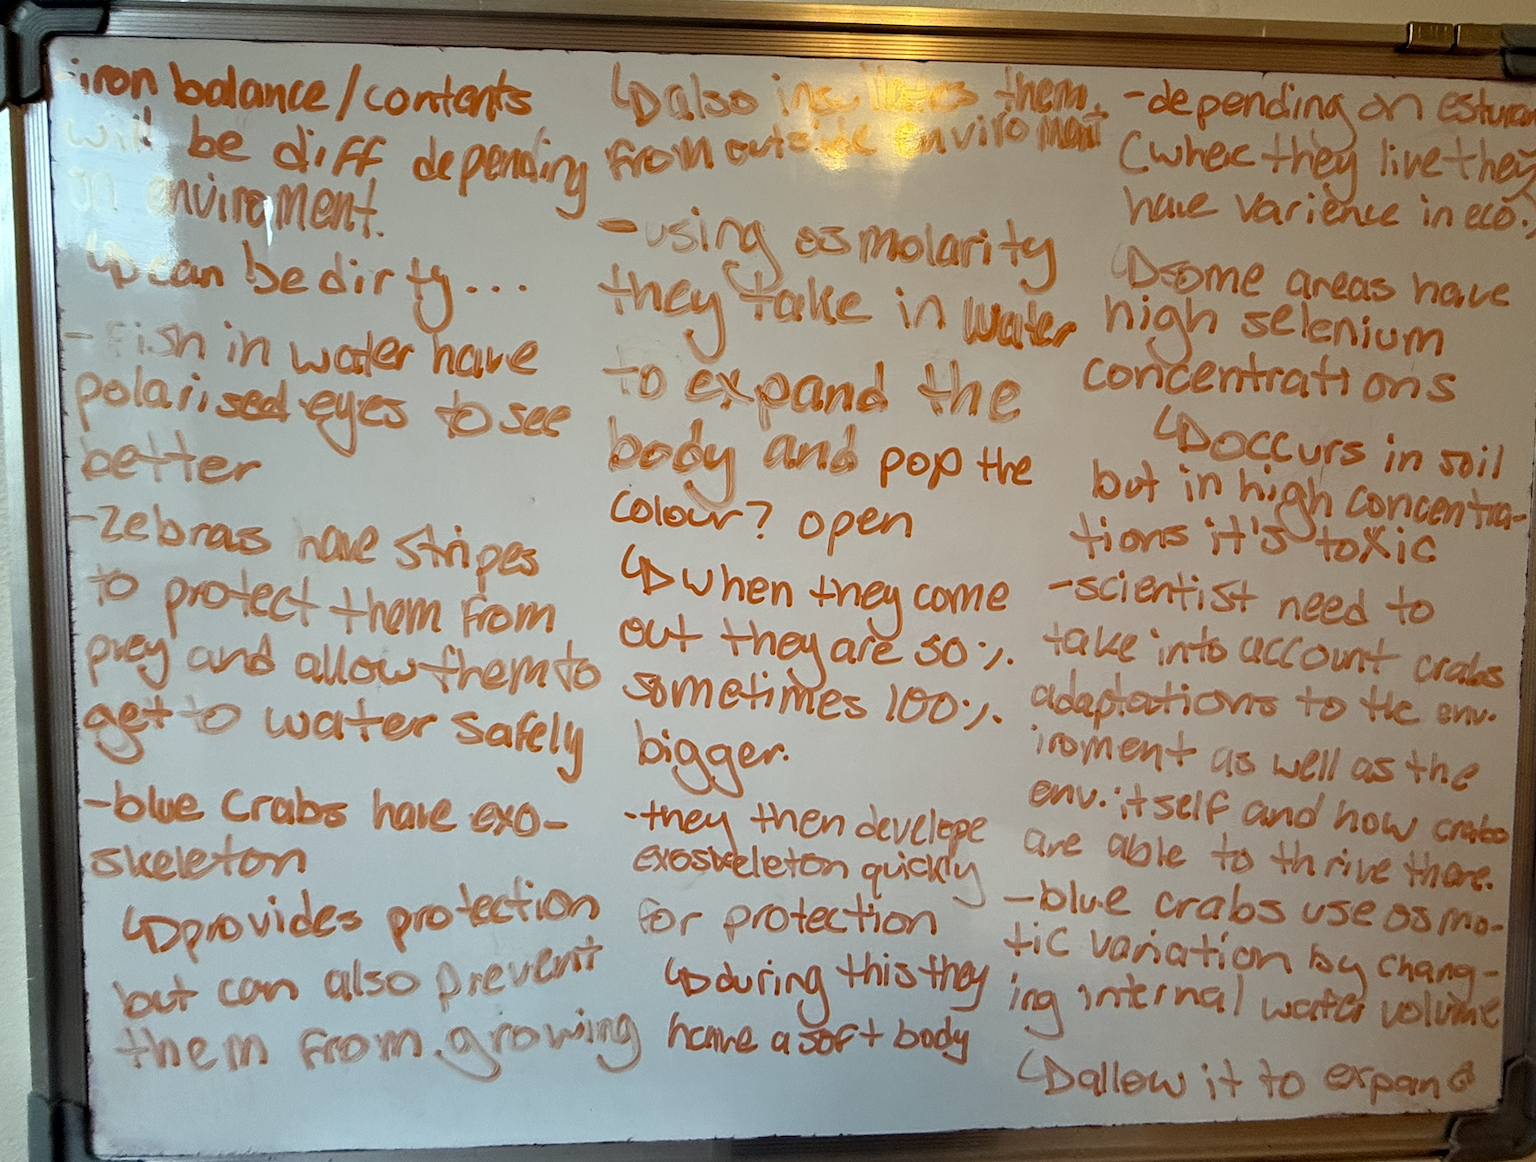 -iron balance/contents
will be diff depending
on enviroment.
↳can be dirty...
-Fish in water have
polarised eyes to see
better
-Zebras have stripes
to protect them from
prey and allow them to
get to water safely
-blue crabs have exo-
skeleton
↳provides protection
but can also prevent
them from growing
↳also insulates them
from outside enviroment
-using osmolarity
they take in water
to expand the
body and pop the
colour? open
↳when they come
out they are 50%.
sometimes 100%.
bigger.
-they then develope
exoskeleton quickly
for protection
↳during this they
have a soft body
-depending on
(where they live they
have varience in eco.)
↳some areas have
high selenium
concentrations
↳occurs in soil
but in high concentra-
tions it's toxic
-scientist need to
take into account crabs
adaptations to the env-
iroment as well as the
env. itself and how crabs
are able to thrive there.
-blue crabs use osmo-
tic variation by chang-
ing internal water volume
↳allow it to expand